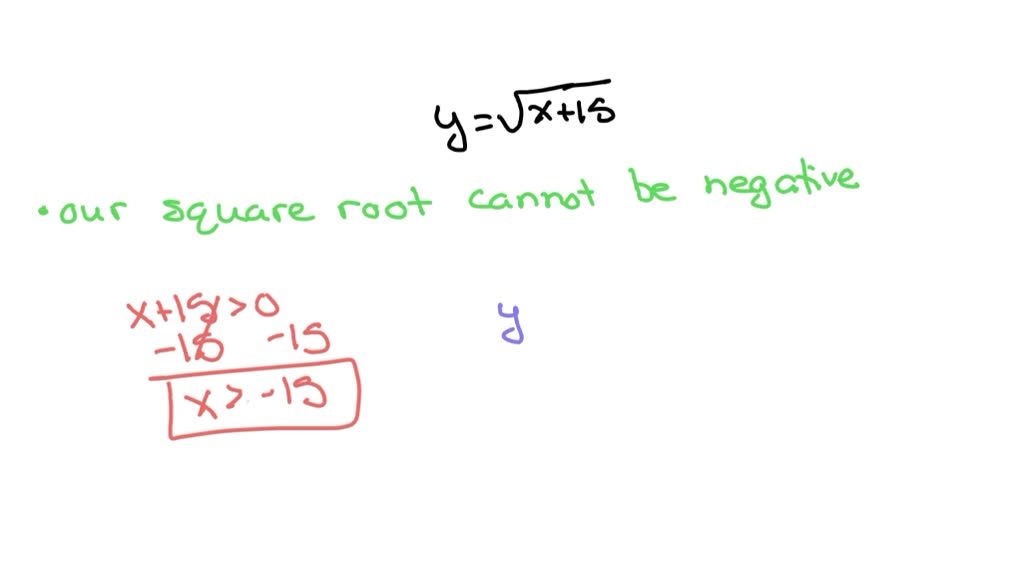 y=√x+15
• our square root cannot be negative
x+15>0
-15 -15
x>-15
y